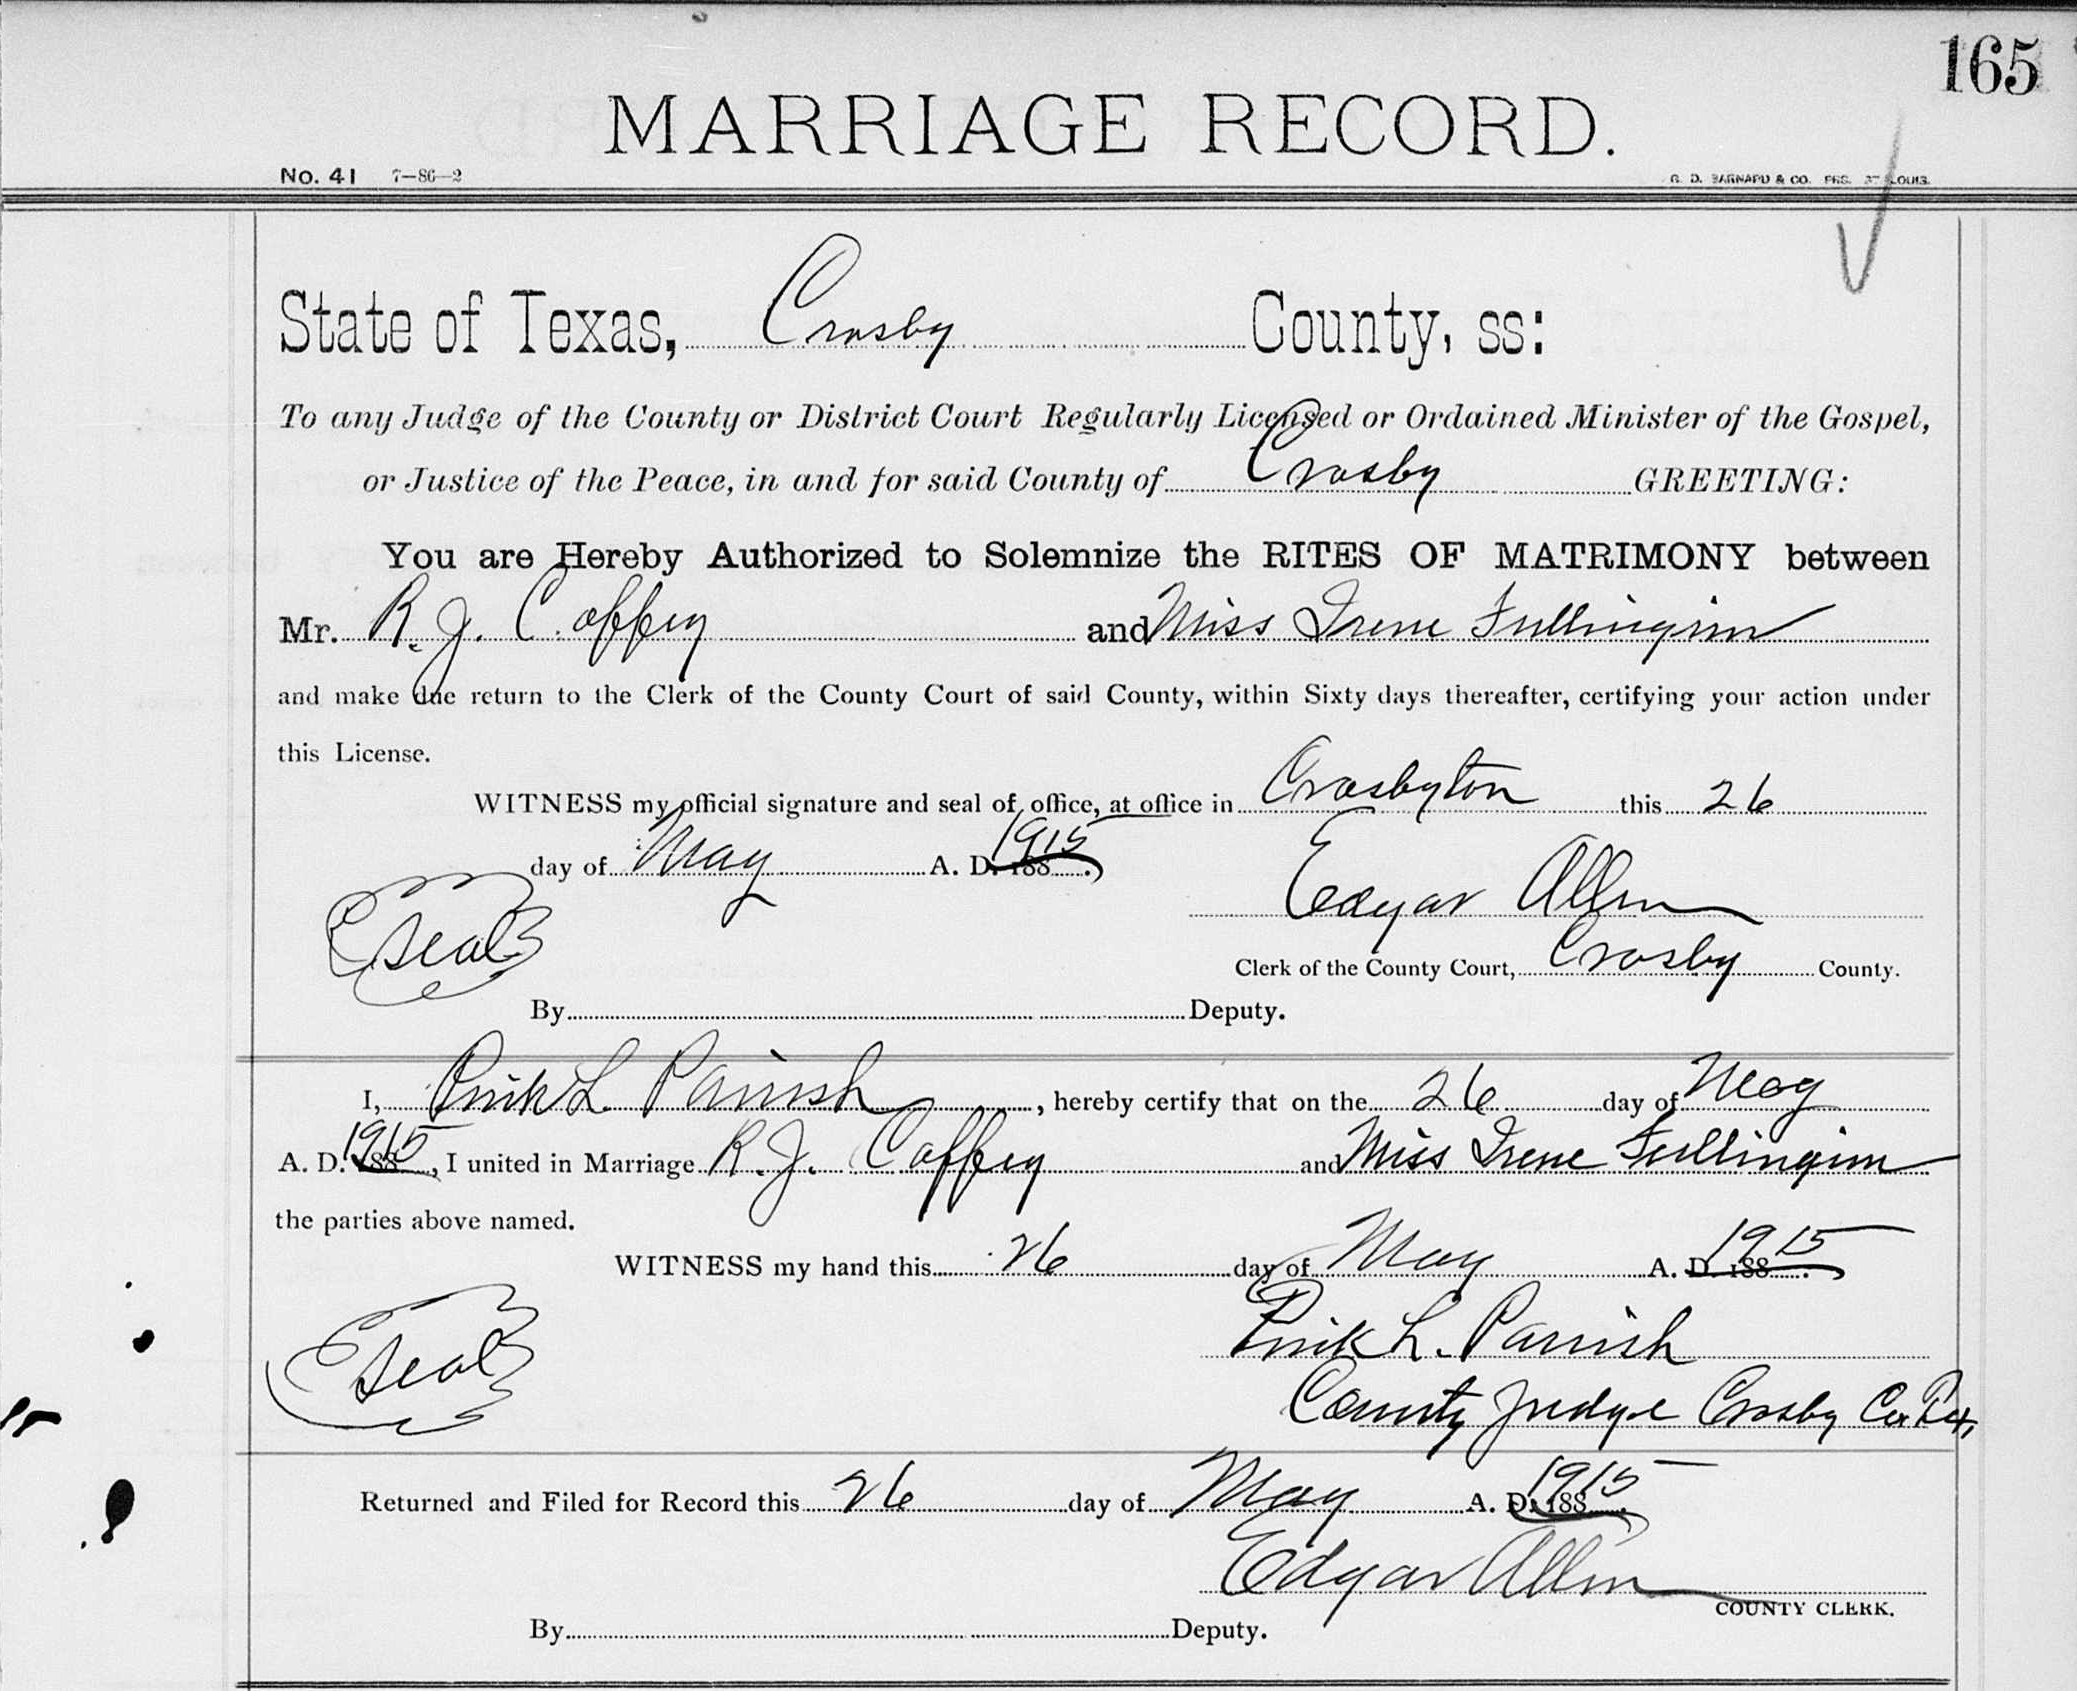 165
MARRIAGE RECORD.
No. 41 7-86-2 G. D. BARNARD & CO. PRS. ST LOUIS.
State of Texas, Crosby County, ss:
To any Judge of the County or District Court Regularly Licensed or Ordained Minister of the Gospel,
or Justice of the Peace, in and for said County of Crosby GREETING:
You are Hereby Authorized to Solemnize the RITES OF MATRIMONY between
Mr. R. J. Coffey and Miss Irene Fullingim
and make due return to the Clerk of the County Court of said County, within Sixty days thereafter, certifying your action under
this License.
WITNESS my official signature and seal of office, at office in Crosbyton this 26
day of May A. D. 188 1915
Edgar Allen
Seal
Clerk of the County Court, Crosby County.
By Deputy.
I, Pink L. Parrish, hereby certify that on the 26 day of May
A. D. 188 1915, I united in Marriage R. J. Coffey and Miss Irene Fullingim
the parties above named.
WITNESS my hand this 26 day of May A. D. 188 1915
Pink L. Parrish
Seal
County Judge Crosby Co Tex,
Returned and Filed for Record this 26 day of May A. D. 188 1915
Edgar Allen
COUNTY CLERK.
By Deputy.